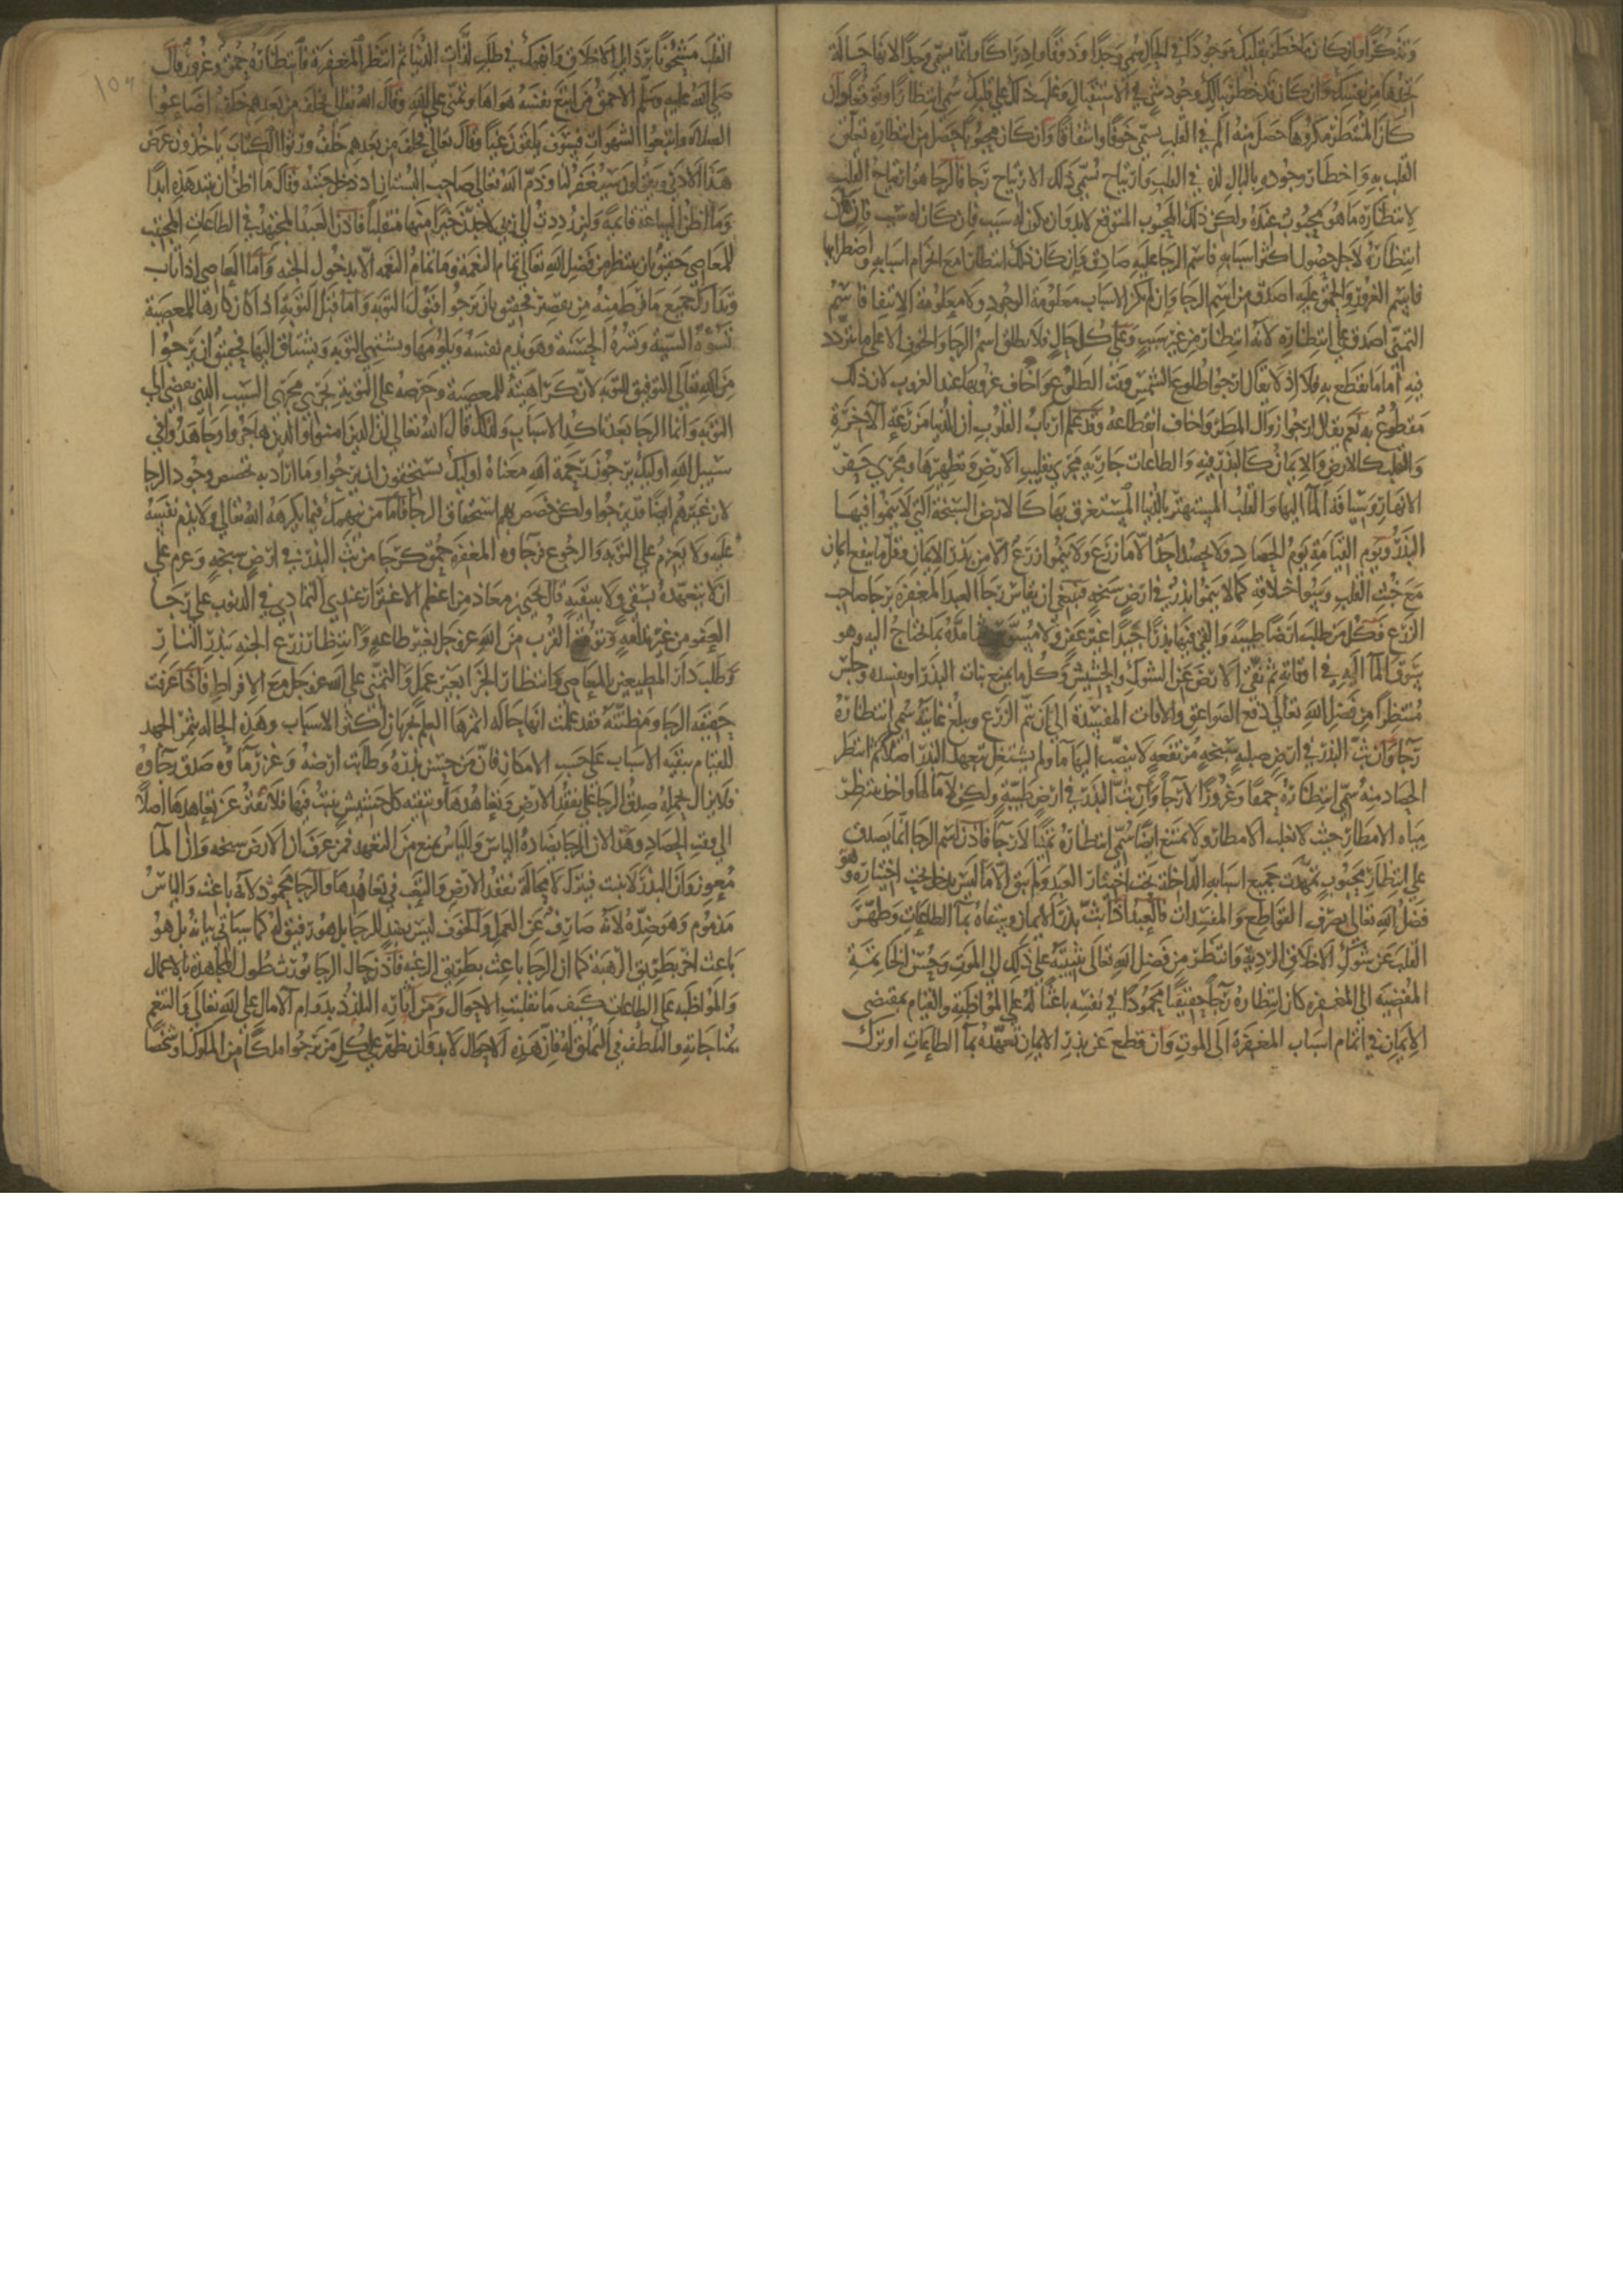 وتذكرا وان كان ما خطر بقلبك موجودا في الحال سمي وجدا وذوقا وادراكا وانما سمي وجدا لانها حالة
تجدها من نفسك وان كان قد خطر ببالك وجود شي في الاستقبال وغلب ذلك علي قلبك سمي انتظارا وتوقعا وان
كان المنتظر مكروها حصل منه الم في القلب سمي خوفا واشفاقا وان كان محبوبا حصل من انتظاره تعلق
القلب به واخطار وجوده بالبال لذه في القلب وارتياح سمي ذلك الارتياح رجا فالرجا هو ارتياح القلب
لانتظاره ما هو محبوب عنده ولكن ذلك المحبوب المتوقع لا بد وان يكون له سبب فان كان له سبب فان كان
انتظاره لاجل حصول اكثر اسبابه فاسم الرجا عليه صادق وان كان ذلك انتظارا مع انخرام اسبابه واضطرابها
فاسم الغرور والحمق عليه اصدق من اسم الرجا وان لم تكن الاسباب معلومة الوجود ولا معلومة الانتفا فاسم
التمني اصدق علي انتظاره لانه انتظار من غير سبب وعلي كل حال فلا يطلق اسم الرجا والخوف الا علي ما يتردد
فيه اما ما يقطع به فلا اذ لا يقال ارجوا طلوع الشمس وقت الطلوع واخاف غروبها عند الغروب لان ذلك
مقطوع به نعم يقال ارجوا نزول المطر واخاف انقطاعه وقد علم ارباب القلوب ان الدنيا مزرعة الاخرة
والقلب كالارض والايمان كالبذر فيه والطاعات جارية مجري تقليب الارض وتطهيرها ومجري حفر
الانهار وسياقة الما اليها والقلب المستهتر بالدنيا المستغرق بها كالارض السبخة التي لا ينموا فيها
البذر ويوم القيامة يوم الحصاد ولا يحصد احد الا ما زرع ولا ينموا زرع الا من بذر الايمان وقلما ينفع ايمان
مع خبث القلب وسوء اخلاقه كما لا ينموا بذر في ارض سبخه فينبغي ان يقاس رجا العبد المغفرة برجا صاحب
الزرع فكل من طلب ارضا طيبة والقي فيها بذرا جيدا غير عفن ولا مسوس ثم امده بما يحتاج اليه وهو
سوق الما اليه في اوقاته ثم نقي الارض عن الشوك والحشيش وكل ما يمنع نبات البذر او يفسده وجلس
منتظرا من فضل الله تعالي دفع الصواعق والافات المفسدة الي ان يتم الزرع ويبلغ غايته سمي انتظاره
رجا وان بث البذر في ارض صلبه سبخه مرتفعه لا ينصب اليها ما ولم يشتغل بتعهد البذر اصلا ثم انتظر
الحصاد منه سمي انتظاره حمقا وغرورا لا رجا وان بث البذر في ارض طيبة ولكن لا ما لها واخذ ينتظر
مياه الامطار حيث لا تغلب الامطار ولا تمتنع ايضا سمي انتظاره تمنيا لا رجا فاذن اسم الرجا انما يصدق
علي انتظار محبوب تمهدت جميع اسبابه الداخلة تحت اختيار العبد ولم يبق الا ما ليس يدخل تحت اختياره وهو
فضل الله تعالي بصرف القواطع والمفسدات فالعبد اذا بث بذر الايمان وسقاه بما الطاعات وطهر
القلب عن شوك الاخلاق الردية وانتظر من فضل الله تعالي تثبيته علي ذلك الي الموت وحسن الخاتمة
المفضيه الي المغفره كان انتظاره رجا حقيقيا محمودا في نفسه باعثا له علي المواظبة والقيام بمقتضي
الايمان في اتمام اسباب المغفرة الي الموت وان قطع عن بذر الايمان تعهده بما الطاعات او ترك
القلب مشحونا برذايل الاخلاق وانهمك في طلب لذات الدنيا ثم انتظر المغفرة فانتظاره حمق وغرور قال
صلي الله عليه وسلم الاحمق من اتبع نفسه هواها وتمني علي الله وقال الله تعالي فخلف من بعدهم خلف اضاعوا
الصلاة واتبعوا الشهوات فسوف يلقون غيا وقال تعالي فخلف من بعدهم خلف ورثوا الكتاب ياخذون عرض
هذا الادني ويقولون سيغفر لنا وذم الله تعالي صاحب البستان اذ دخل جنته وقال ما اظن ان تبيد هذه ابدا
وما اظن الساعة قائمة ولين رددت الي ربي لاجدن خيرا منها منقلبا فاذن العبد المجتهد في الطاعات المجتنب
للمعاصي حقيق بان ينتظر من فضل الله تعالي تمام النعمة وما تمام النعمه الا بدخول الجنه واما العاصي اذا تاب
وتدارك جميع ما فرط منه من تقصير فحقيق بان يرجوا قبول التوبه واما قبل التوبة اذا كان كارها للمعصية
تسوءه السيئه وتسره الحسنة وهو يذم نفسه ويلومها ويشتهي التوبه ويشتاق اليها فحقيق ان يرجوا
من الله تعالي التوفيق للتوبه لان كراهيته للمعصية وحرصه علي التوبة يجري مجري السبب الذي يفضي الي
التوبه وانما الرجا بعد تاكد الاسباب ولذلك قال الله تعالي ان الذين امنوا والذين هاجروا وجاهدوا في
سبيل الله اوليك يرجون رحمة الله معناه اوليك يستحقون ان يرجوا وما اراد به تخصيص وجود الرجا
لان غيرهم ايضا قد يرجوا ولكن خصص بهم استحقاق الرجا فاما من ينهمك فيما يكرهه الله تعالي ولا يذم نفسه
عليه ولا يعزم علي التوبه والرجوع فرجاوه المغفرة حمق كرجا من بث البذر في ارض سبخه وعزم علي
ان لا يتعهده بسقي ولا ينقيه قال يحيي بن معاذ من اعظم الاغترار عندي التمادي في الذنوب علي رجا
العفو من غير ندامه وتوقع القرب من الله عز وجل بغير طاعه وانتظار زرع الجنه ببذر النار
وطلب دار المطيعين بالمعاصي وانتظار الجزا بغير عمل والتمني علي الله عز وجل مع الافراط فاذا عرفت
حقيقه الرجا ومظنته فقد علمت انها حاله اثمرها العلم بجريان اكثر الاسباب وهذه الحاله تثمر الجهد
للقيام ببقيه الاسباب علي حسب الامكان فان من حسن بذره وطابت ارضه وغزر ماوه صدق رجاوه
فلا يزال يحمله صدق الرجا علي تفقد الارض وتعاهدها وتنقيه كل حشيش ينبت فيها فلا يفتر عن تعاهدها اصلا
الي وقت الحصاد وهذا لان الرجا يضاده الياس والياس يمنع من التعهد فمن عرف ان الارض سبخه وان الما
معوز وان البذر لا ينبت فيترك لا محالة تفقد الارض والتعب في تعاهدها والرجا محمود لانه باعث والياس
مذموم وهو ضده لانه صارف عن العمل والخوف ليس بضد للرجا بل هو رفيق له كما سياتي بيانه بل هو
باعث اخر بطريق الرهبة كما ان الرجا باعث بطريق الرغبه فاذن حال الرجا يورث طول المجاهدة بالاعمال
والمواظبه علي الطاعات كيف ما تقلبت الاحوال ومن اثاره التلذذ بدوام الاقبال علي الله تعالي والتنعم
بمناجاته والتلطف في التملق له فان هذه الاحوال لا بد وان يظهر علي كل من يرجوا ملكا من الملوك او شخصا